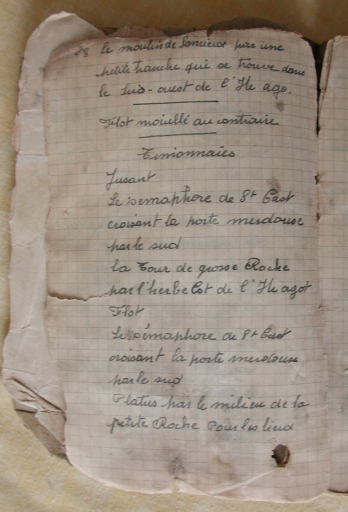 28 le moulin de Lancieux par une
petite tranche qui se trouve dans
le Sud-ouest de l'Ile ago.
Flot mouillé au contraire
Timonnaies
Jusant
Le Sémaphore de St Cast
croisant la porte merdouse
par le sud
la Tour de grosse Roche
par l'herbe Est de l'Ile agot
Flot
Le Sémaphore de St Cast
croisant la porte merdouse
par le sud
Platus par le milieu de la
petite Roche Pour les lieux